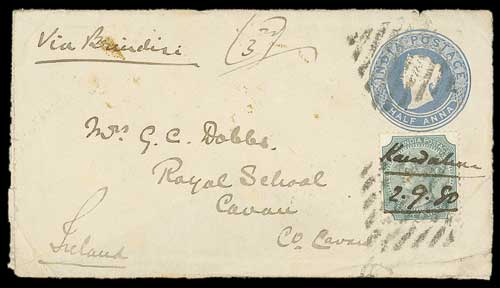 Via Brindisi
3rd
INDIA POSTAGE
HALF ANNA
Mrs G. C. Dobbs.
Royal School
Cavan
Co. Cavan
Ireland
INDIA POSTAGE
Kandahar
2.9.80